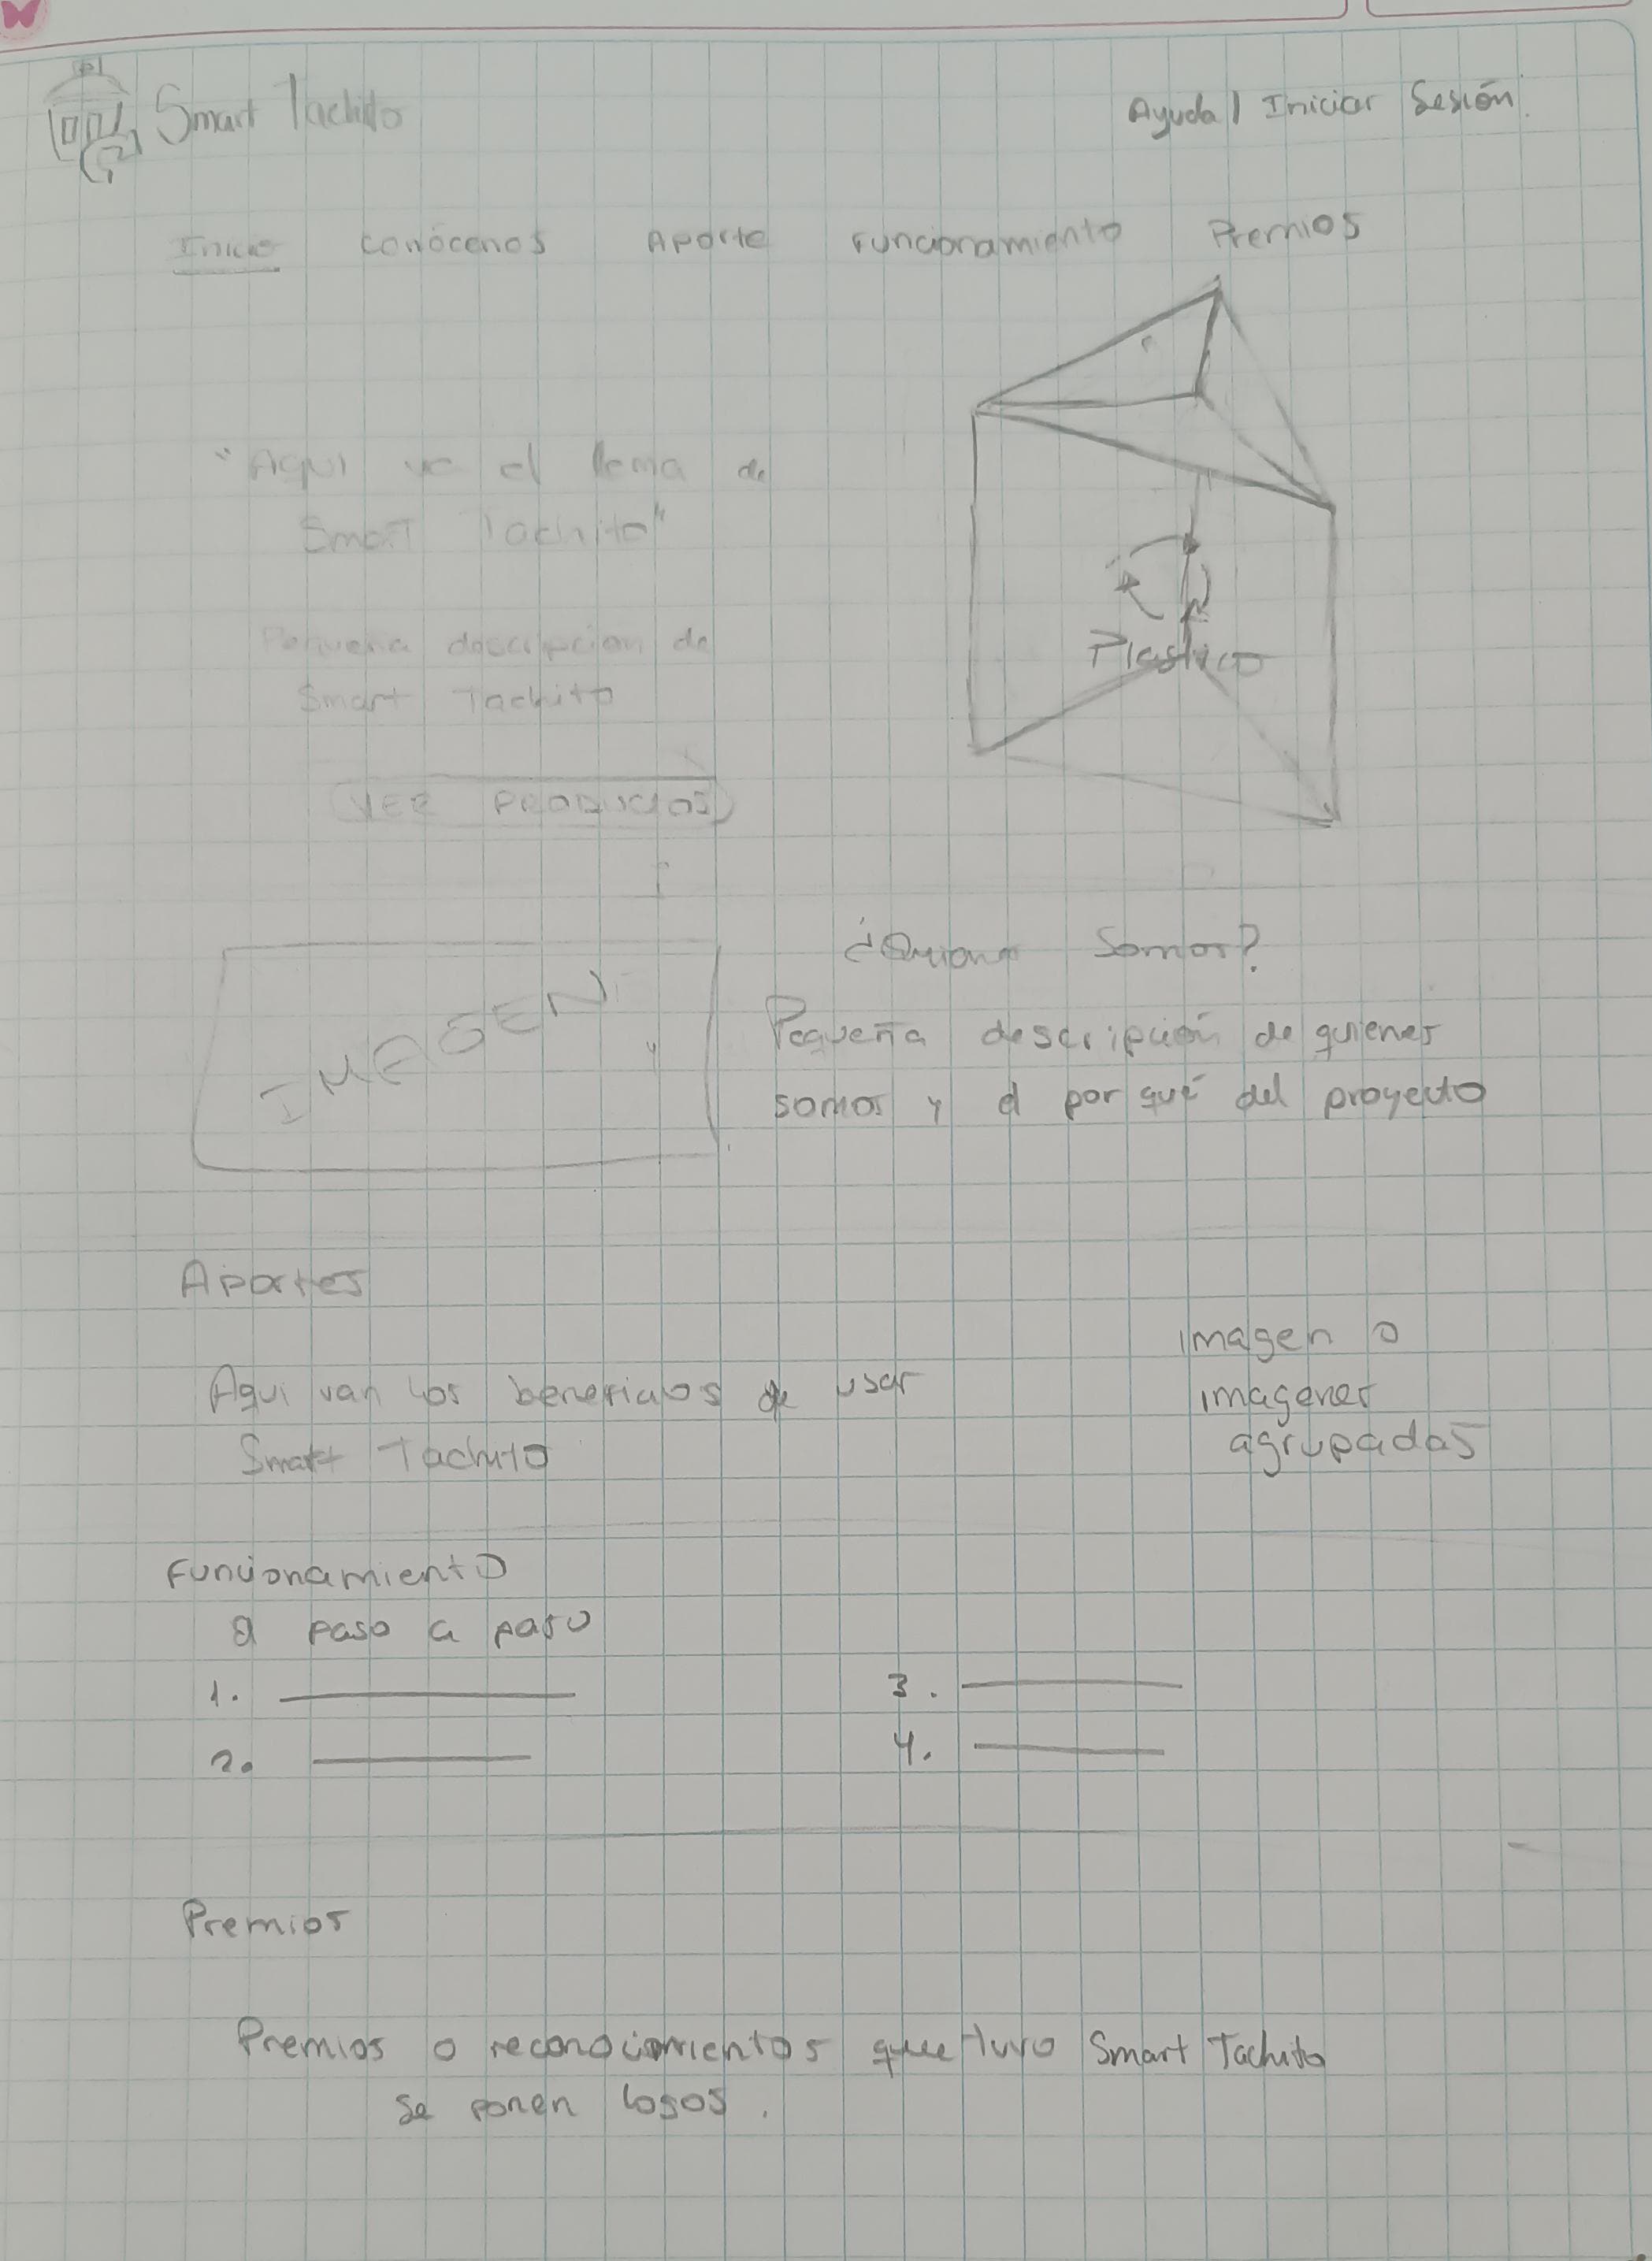 Smart Tachito
Ayuda | Iniciar Sesión
Inicio Conócenos Aporte Funcionamiento Premios
"Aqui va el lema de
Smart Tachito"
Plastico
Pequeña descripcion de
Smart Tachito
VER PRODUCTOS
IMAGEN
¿Quienes Somos?
Pequeña descripción de quienes
somos y el por qué del proyecto
Aportes
Aqui van los beneficios de usar
Smart Tachito
imagen o
imagenes
agrupadas
Funcionamiento
el paso a paso
1.
2.
3.
4.
Premios
Premios o reconocimientos que tuvo Smart Tachito
se ponen logos.